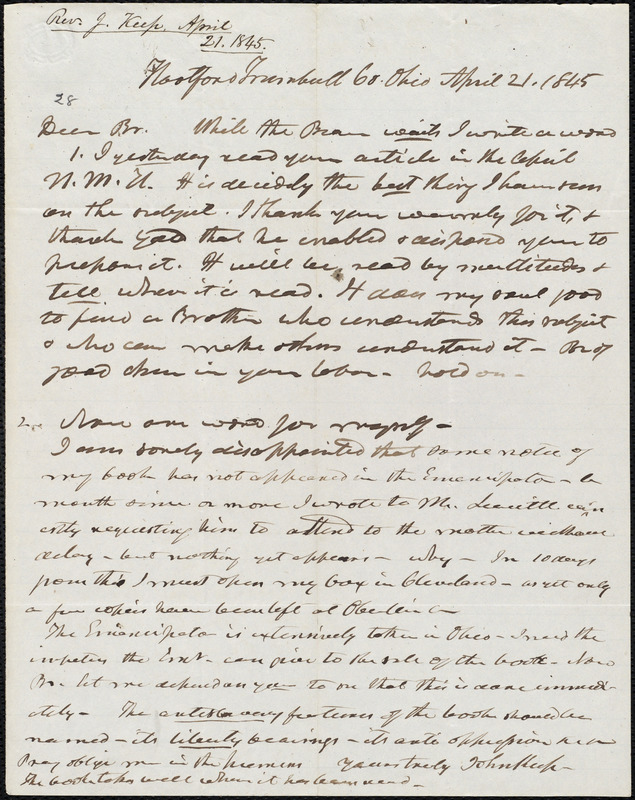 Rev. J. Keep, April
21. 1845.
Hartford Trumbull Co. Ohio April 21. 1845
28
Dear Br. While the Bearer waits I write a word
1. I yesterday read your article in the April
N. M. It is decidedly the best thing I have seen
on the subject. I thank you warmly for it, &
thank God that he enabled & disposed you to
prepare it. It will be read by multitudes &
tell when it is read. It does my soul good
to find a Brother who understands this subject
& who can make others understand it - Be of
good cheer in your labor - hold on -
2. Now one word for myself -
I am sorely disappointed that some notice of
my book has not appeared in the Emancipator - a
month since or more I wrote to Mr. Leavitt earn
estly requesting him to attend to the matter without
delay - but nothing yet appears - why - In 10 days
from this I must open my box in Cleveland - as yet only
a few copies have been left at Oberlin -
The Emancipator is extensively taken in Ohio - I need the
impetus the Emr. can give to the sale of the book - Now
Br. let me depend on you to see that this is done immedi
ately - The antislavery features of the book should be
named - its liberty bearings - its anti oppression
Pray oblige me in the premises Yours truly John Keep -
The book takes well where it has been read -